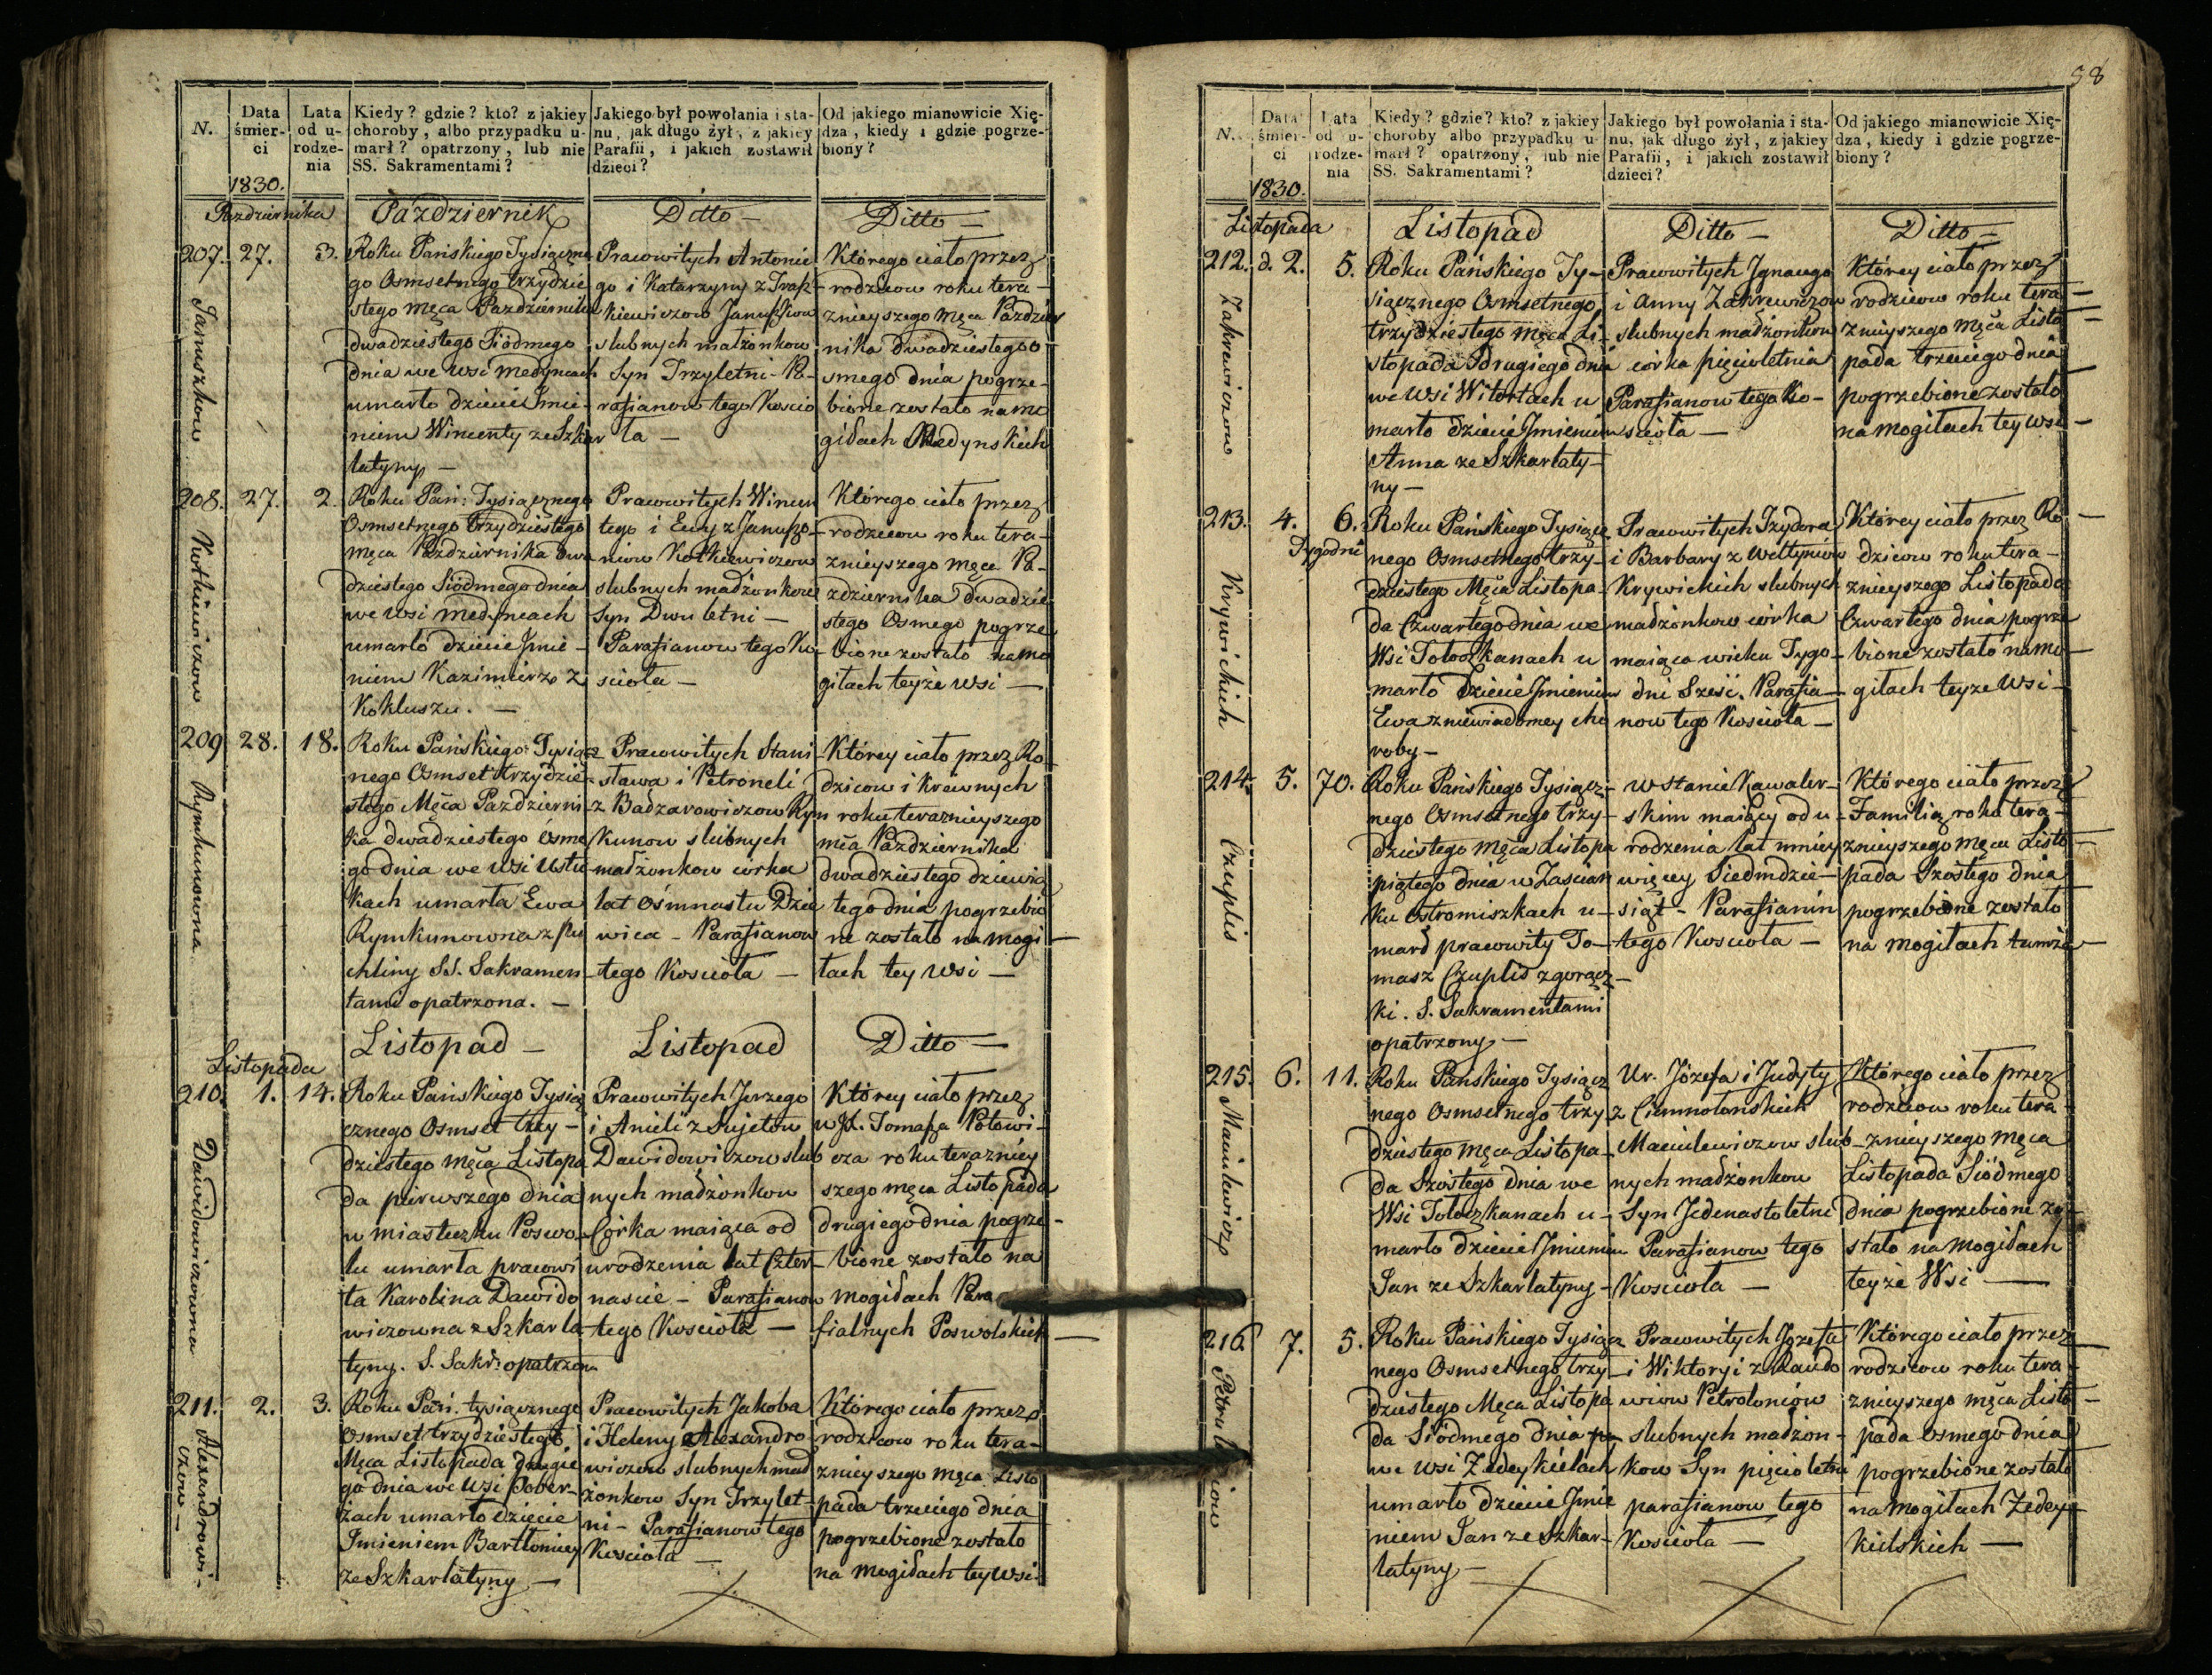 58
N.
Data śmier- ci
Lata od u- rodze- nia
Kiedy? gdzie? kto? z jakiey
choroby, albo przypadku u-
marł? opatrzony, lub nie
SS. Sakramentami?
Jakiego był powołania i sta-
nu, jak długo żył, z jakiey
Parafii, i jakich zostawił
dzieci?
Od jakiego mianowicie Xię-
dza, kiedy i gdzie pogrze-
biony?
1830.
Pazdziernika
Pazdziernik
Ditto —
Ditto —
207. 27. 3.
Januszkow
Roku Pańskiego Tysiączne
go Osmsetnego trzydzie
stego Męca Pazdziernika
dwadziestego Siodmego
dnia we wsi Medyncach
umarło dziecie Jmie-
niem Wincenty ze Szkar
latyny —
Pracowitych Antonie
go i Katarzyny z
Januszkow
slubnych małżonkow
Syn Trzyletni - Pa-
rafianow tego Koscio
ła —
Którego ciało przez
rodzicow roku tera-
znieyszego Męca Pazdzier
nika dwadziestego o
smego dnia pogrze-
bione zostało na mo
giłach Medynskich
208. 27. 2.
Kotkiewiczow
Roku Pań: Tysiącznego
Osmsetnego trzydziestego
Męca Pazdziernika dwa
dziestego Siódmego dnia
we wsi Medyncach
umarło dziecie Jmie-
niem Kazimierz z
Kokluszu. —
Pracowitych Wincen
tego i Ewy z Januszo-
now Kotkiewiczow
slubnych madżonkow
Syn Dwu letni —
Parafianow tego Ko-
scioła —
Którego ciało przez
rodzicow roku tera-
znieyszego Męca Pa-
zdziernika dwadzie
stego Osmego pogrze
bione zostało na mo
giłach teyże wsi —
209 28. 18.
Rymkunowna
Roku Pańskiego Tysiącz
nego Osmset trzydzie-
stego Męca Pazdzierni
ka dwadziestego ósme
go dnia we wsi Ustu
kach umarła Ewa
Rymkunowna z Pu
chliny SS. Sakramen
tami opatrzona. —
Pracowitych Stani
sława i Petroneli
z Badzarowiczow Rym
kunow slubnych
madżonkow córka
lat Osmnastu Dzie
wica - Parafianow
tego Kościoła —
Którey ciało przez Ro
dzicow i Krewnych
roku teraznieyszego
mca Pazdziernika
dwadziestego dziewią
tego dnia pogrzebio
ne zostało na mogi
łach tey wsi —
Listopada
Listopad —
Listopad
Ditto —
210. 1. 14.
Dawidowiczowna
Roku Pańskiego Tysią
cznego Osmset trzy-
dziestego Męca Listopa
da pierwszego dnia
w miasteczku Poswo-
lu umarła pracowi
ta Karolina Dawido
wiczowna z Szkarla
tyny. S. Sakr: opatrzona
Pracowitych Jerzego
i Anieli z Sujetow
Dawidowiczow slub
nych madżonkow
Córka maiąca od
urodzenia lat Czter-
nascie - Parafianow
tego Kościoła —
Którey ciało przez
WJX. Tomasza Połowi-
cza roku teraźniey
szego męca Listopada
drugiego dnia pogrze-
bione zostało na
mogiłach Para
fialnych Poswolskich —
211. 2. 3.
Alexandrowi-
czow —
Roku Pań. tysiącznego
Osmset trzydziestego
Męca Listopada drugie
go dnia we wsi Tober-
żach umarło dziecie
Jmieniem Bartłomiey
ze Szkarlatyny —
Pracowitych Jakoba
i Heleny Alexandro
wiczow slubnych mad
żonkow Syn Trzylet-
ni - Parafianow tego
Kościoła —
Którego ciało przez
rodzicow roku tera-
znieyszego Męca Listo
pada trzeciego dnia
pogrzebione zostało
na mogiłach tey wsi
N.
Data śmier- ci
Lata od u- rodze- nia
Kiedy? gdzie? kto? z jakiey
choroby albo przypadku u-
marł? opatrzony, lub nie
SS. Sakramentami?
Jakiego był powołania i sta-
nu, jak długo żył, z jakiey
Parafii, i jakich zostawił
dzieci?
Od jakiego mianowicie Xię-
dza, kiedy i gdzie pogrze-
biony?
1830.
Listopada
Listopad
Ditto —
Ditto —
212. d. 2. 5.
Zakrewiczow
Roku Pańskiego Ty-
siącznego Osmsetnego
trzydziestego męca Li-
stopada drugiego dnia
we wsi Witartach u
marło dziecie Jmieniem
Anna ze Szkarlaty-
ny —
Pracowitych Jgnacego
i Anny Zakrewiczow
slubnych madżonkow
córka pięcioletnia
Parafianow tego Ko-
ścioła —
Którey ciało przez
rodzicow roku tera —
znieyszego męca Listo —
pada trzeciego dnia
pogrzebione zostało
na mogiłach tey wsi —
213. 4. 6. Tygodni
Krywickich
Roku Pańskiego Tysiącz
nego Osmsetnego trzy-
dziestego Męca Listopa-
da Czwartego dnia we
Wsi Toloczkanach u
marło Dziecie Jmieniem
Ewa z niewiadomey cho
roby —
Pracowitych Jzydora
i Barbary z Weltynów
Krywickich slubnych
madżonkow córka
maiąca wieku Tygo-
dni Sześć. Parafia-
now tego Kościoła —
Którey ciało przez Ro —
dzicow roku tera-
znieyszego Listopada
Czwartego dnia pogrze
bione zostało na mo-
giłach teyże Wsi —
214. 5. 70.
Czuplis
Roku Pańskiego Tysiącz-
nego Osmsetnego trzy-
dziestego męca Listopa
piątego dnia w Zascian
ku Ostromiszkach u-
mard pracowity To-
masz Czuplis z gorącz-
ki. S. Sakramentami
opatrzony —
W stanie Kawaler-
skim maiący od u-
rodzenia lat mniey
więcey Siedmdzie-
siąt - Parafianin
tego Kościoła —
Którego ciało przez
Familią roku tera-
znieyszego męca Listo —
pada Szóstego dnia
pogrzebione zostało
na mogiłach tamże —
215. 6. 11.
Maciulewicz
Roku Pańskiego Tysiącz
nego Osmsetnego trzy
dziestego męca Listopa-
da Szóstego dnia we
Wsi Toloczkanach u-
marło dziecie Jmieniem
Jan ze Szkarlatyny -
Ur. Józefa i Judyty
z Ciemnołonskich
Maciulewiczow slub-
nych madżonkow
Syn Jedenastoletni
Parafianow tego
Kościoła —
Którego ciało przez
rodzicow roku tera-
znieyszego męca
Listopada Siódmego
dnia pogrzebione zo-
stało na mogiłach
teyże Wsi —
216 7. 5.
Roku Pańskiego Tysiącz
nego Osmsetnego trzy-
dziestego Męca Listopa
da Siódmego dnia
we wsi Zedeykielach
umarło dziecie Jmie
niem Jan ze Szkar-
latyny —
Pracowitych Józefa
i Wiktoryi z Raudo
wiow Petroloniów
slubnych madżon-
kow Syn pięcioletni
parafianow tego
Kościoła —
Którego ciało przez
rodzicow roku tera-
znieyszego męca Listo —
pada Osmego dnia
pogrzebione zostało
na mogiłach Zedey-
kielskich —